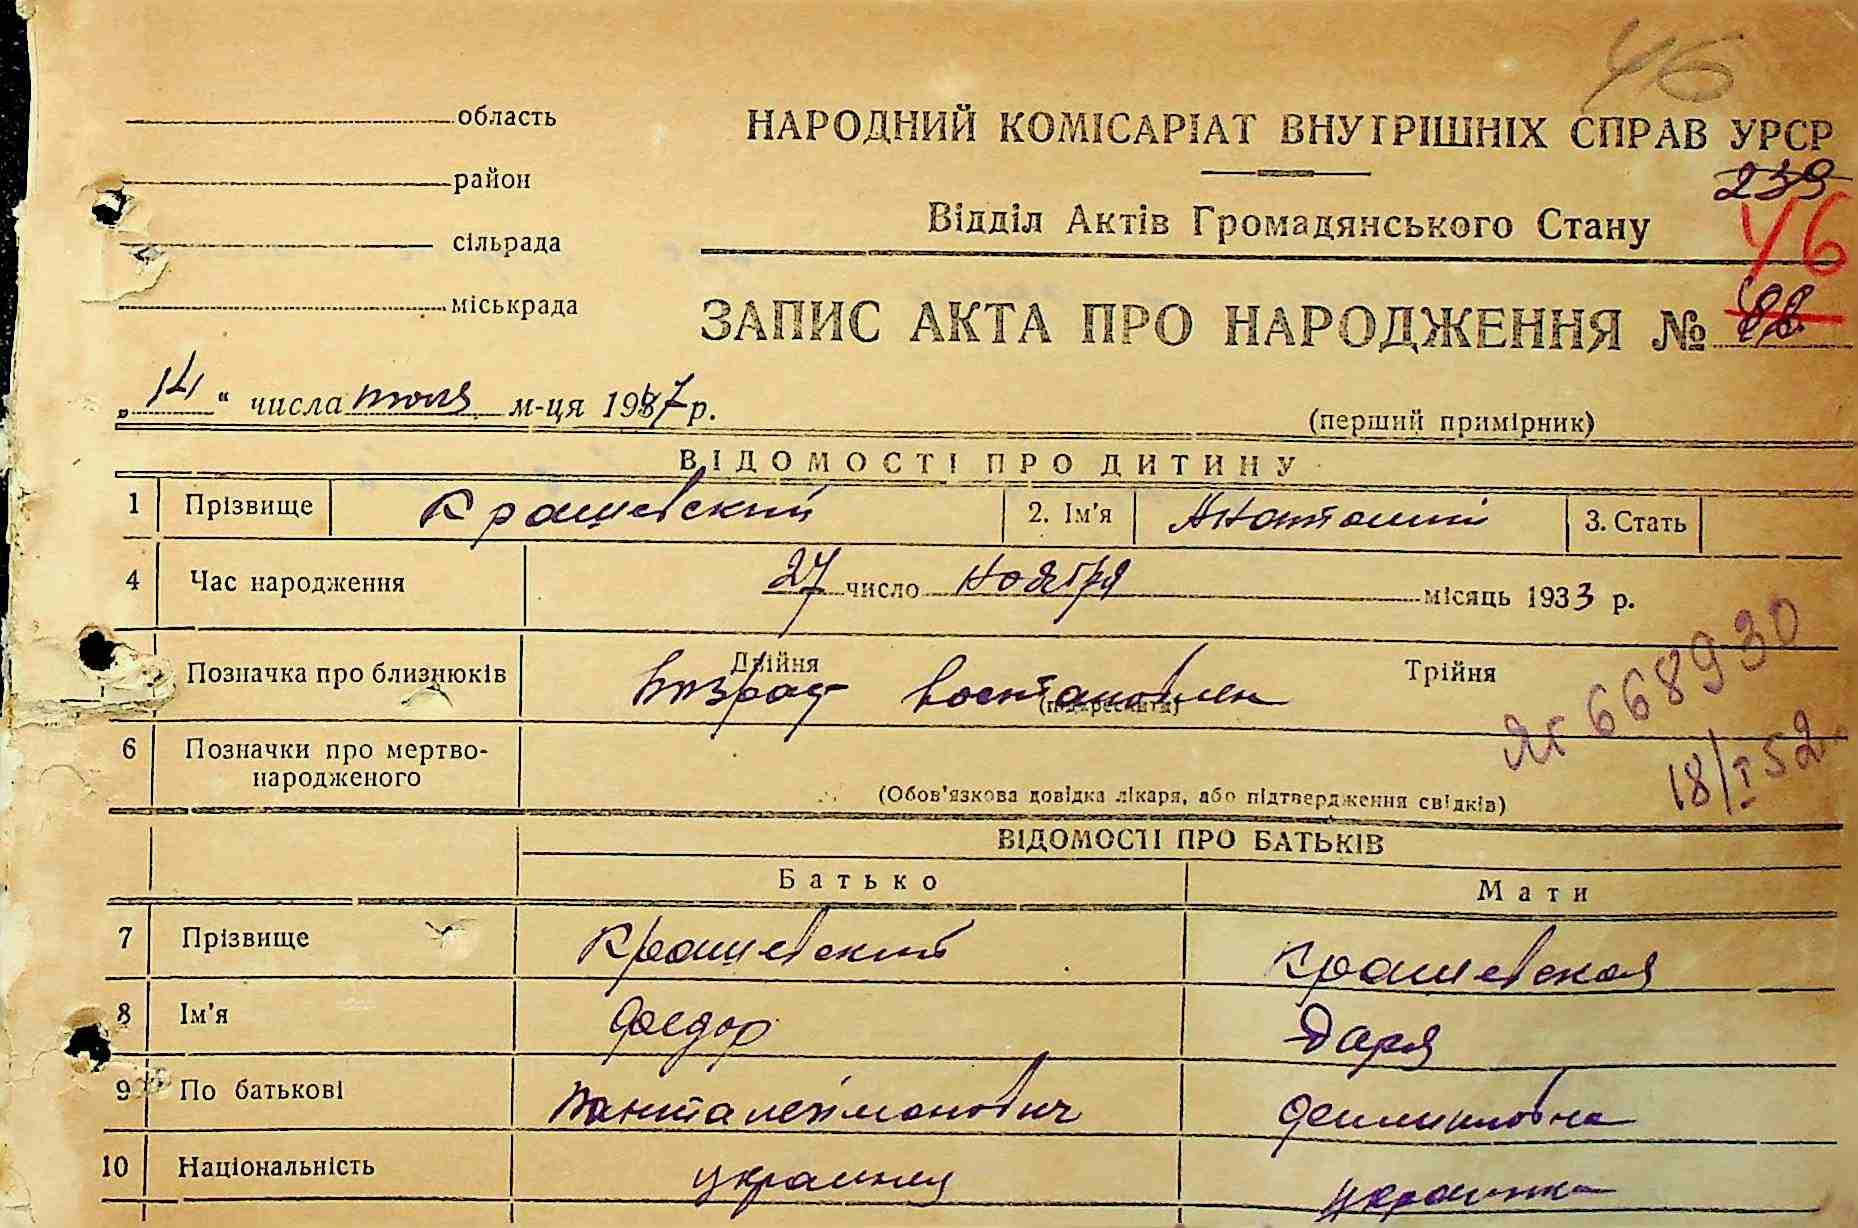 46
область
НАРОДНИЙ КОМІСАРІАТ ВНУТРІШНІХ СПРАВ УРСР
район
239
Відділ Актів Громадянського Стану
46
сільрада
міськрада
ЗАПИС АКТА ПРО НАРОДЖЕННЯ №
„14“ числа июля м-ця 1937 р.
(перший примірник)
ВІДОМОСТІ ПРО ДИТИНУ
1 Прізвище Крашевский 2. Ім'я Анатолий 3. Стать
4 Час народження 27 число ноября місяць 1933 р.
Позначка про близнюків Двійня Трійня
Возраст востановлен
(підкреслити)
ЯГ 668930
18/I 52
6 Позначки про мертво-
народженого
(Обов'язкова довідка лікаря, або підтвердження свідків)
ВІДОМОСТІ ПРО БАТЬКІВ
Батько Мати
7 Прізвище Крашевский Крашевская
8 Ім'я Федор Даря
9 По батькові Панталеймонович
10 Національність украинец украинка